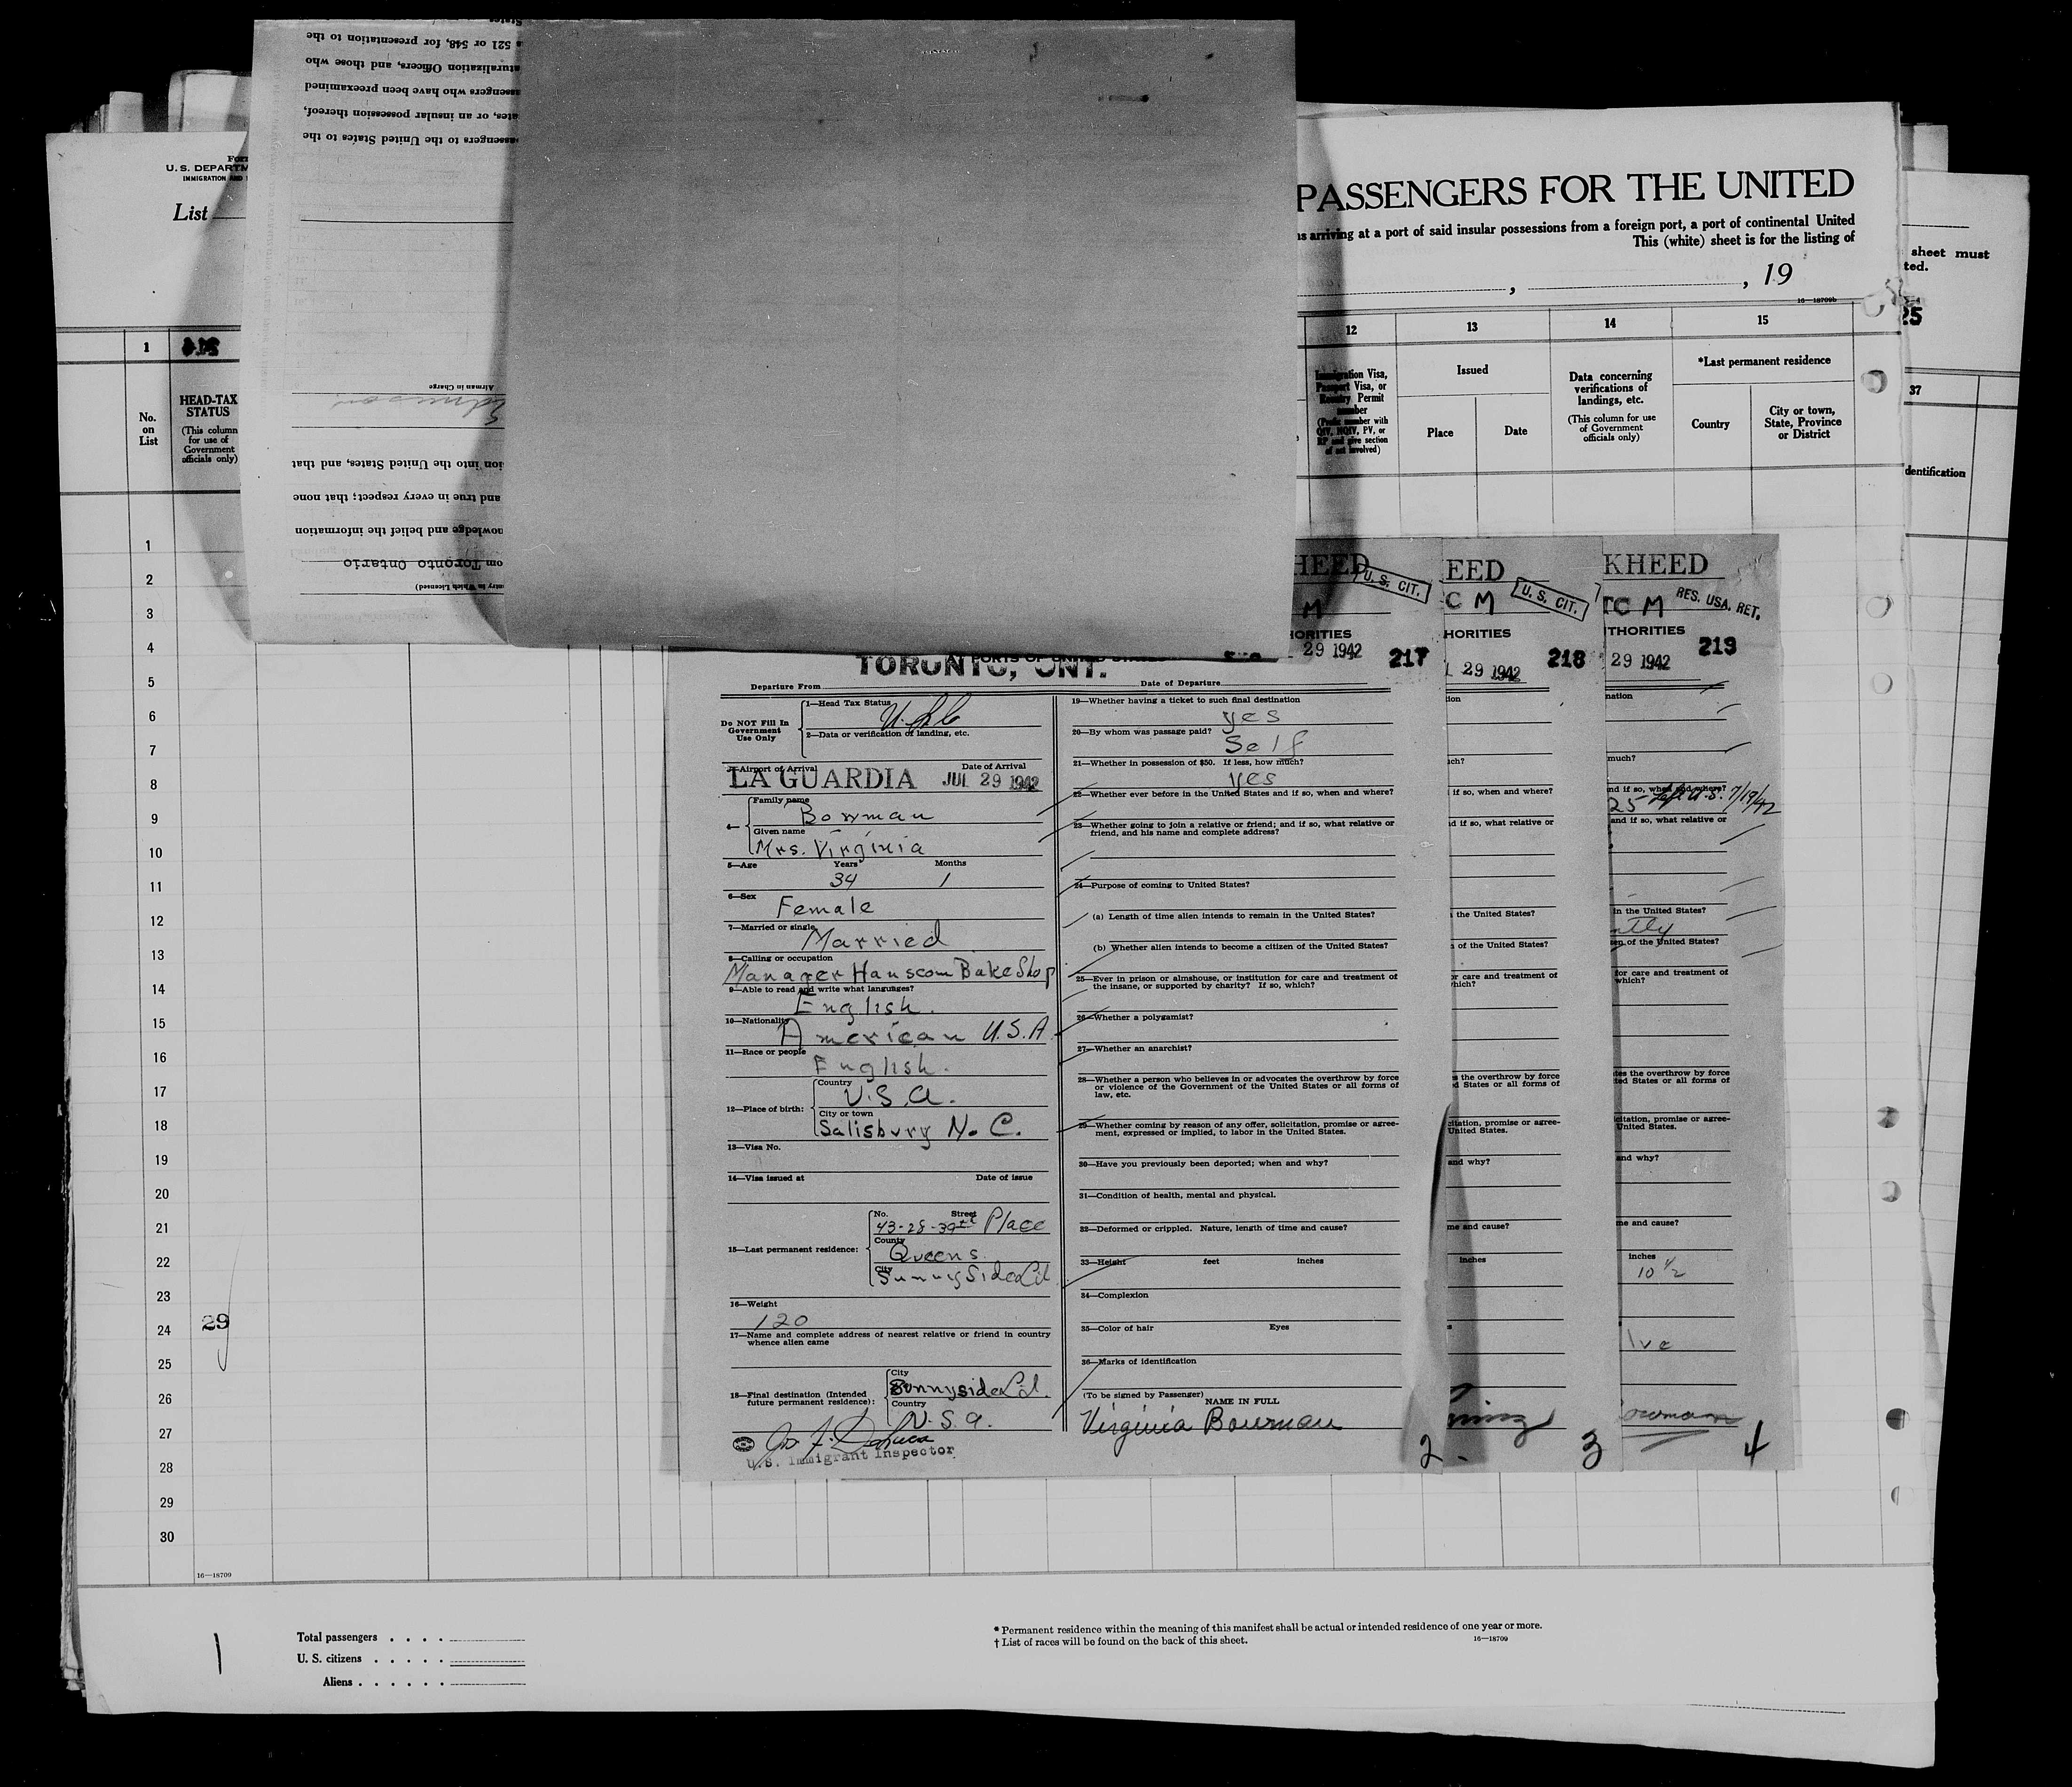 States
521 or 548, for presentation to the
aturalization Officers, and those who
assengers who have been preexamined
ates, or an insular possession thereof,
assengers to the United States to the
Airman in Charge
ion into the United States, and that
and true in every respect; that none
nowledge and belief the information
om Toronto Ontario
ntry in Which Licensed)
Form
U. S. DEPARTM
IMMIGRATION AND
List
PASSENGERS FOR THE UNITED
ns arriving at a port of said insular possessions from a foreign port, a port of continental United
This (white) sheet is for the listing of
, , 19
16—18709b
sheet must
ted.
25
1
12
13
14
15
37
No.
on
List
HEAD-TAX
STATUS
(This column
for use of
Government
officials only)
Immigration Visa,
Passport Visa, or
Reentry Permit
number
(Prefix number with
QIV, NQIV, PV, or
RP and give section
of act involved)
Issued
Place
Date
Data concerning
verifications of
landings, etc.
(This column for use
of Government
officials only)
*Last permanent residence
Country
City or town,
State, Province
or District
dentification
1
2
3
4
5
6
7
8
9
10
11
12
13
14
15
16
17
18
19
20
21
22
23
24
25
26
27
28
29
30
29
16—18709
HEED
U. S. CIT.
M
HORITIES
29 1942
217
TORONTO, ONT.
Departure From
Date of Departure
Do NOT Fill In
Government
Use Only
1—Head Tax Status
2—Data or verification of landing, etc.
3—Airport of Arrival
Date of Arrival
LA GUARDIA JUL 29 1942
4—
Family name
Bowman
Given name
Mrs. Virginia
5—Age Years Months
34 1
6—Sex
Female
7—Married or single
Married
8—Calling or occupation
Manager Hanscom Bake Shop
9—Able to read and write what languages?
English.
10—Nationality
American U.S.A.
11—Race or people
English.
12—Place of birth:
Country
U.S.A.
City or town
Salisbury N. C.
13—Visa No.
14—Visa issued at Date of issue
15—Last permanent residence:
No. Street
43-28-39th Place
County
Queens
City
SunnySide L.I.
16—Weight
120
17—Name and complete address of nearest relative or friend in country
whence alien came
18—Final destination (Intended
future permanent residence):
City
Sunnyside L.I.
Country
U.S.A.
U.S. Immigrant Inspector
19—Whether having a ticket to such final destination
yes
20—By whom was passage paid?
Self
21—Whether in possession of $50. If less, how much?
yes
22—Whether ever before in the United States and if so, when and where?
23—Whether going to join a relative or friend; and if so, what relative or
friend, and his name and complete address?
24—Purpose of coming to United States?
(a) Length of time alien intends to remain in the United States?
(b) Whether alien intends to become a citizen of the United States?
25—Ever in prison or almshouse, or institution for care and treatment of
the insane, or supported by charity? If so, which?
26—Whether a polygamist?
27—Whether an anarchist?
28—Whether a person who believes in or advocates the overthrow by force
or violence of the Government of the United States or all forms of
law, etc.
29—Whether coming by reason of any offer, solicitation, promise or agree-
ment, expressed or implied, to labor in the United States.
30—Have you previously been deported; when and why?
31—Condition of health, mental and physical.
32—Deformed or crippled. Nature, length of time and cause?
33—Height feet inches
34—Complexion
35—Color of hair Eyes
36—Marks of identification
(To be signed by Passenger)
NAME IN FULL
Virginia Bowman
2
EED
C M
U. S. CIT.
HORITIES
L 29 1942
218
tion
ch?
if so, when and where?
nd if so, what relative or
the United States?
of the United States?
or care and treatment of
hich?
s the overthrow by force
d States or all forms of
citation, promise or agree-
United States.
and why?
me and cause?
inches
s
3
KHEED
TC M
RES. USA. RET.
THORITIES
29 1942
219
nation
much?
nd if so, when and where?
25- Left U.S. 7/19/42
and if so, what relative or
in the United States?
ntly
en of the United States?
for care and treatment of
which?
tes the overthrow by force
ted States or all forms of
icitation, promise or agree-
United States.
and why?
me and cause?
inches
10 1/2
lve
owman
4
Total passengers . . . .
U. S. citizens . . . . .
Aliens . . . . . .
* Permanent residence within the meaning of this manifest shall be actual or intended residence of one year or more.
† List of races will be found on the back of this sheet.
16—18709